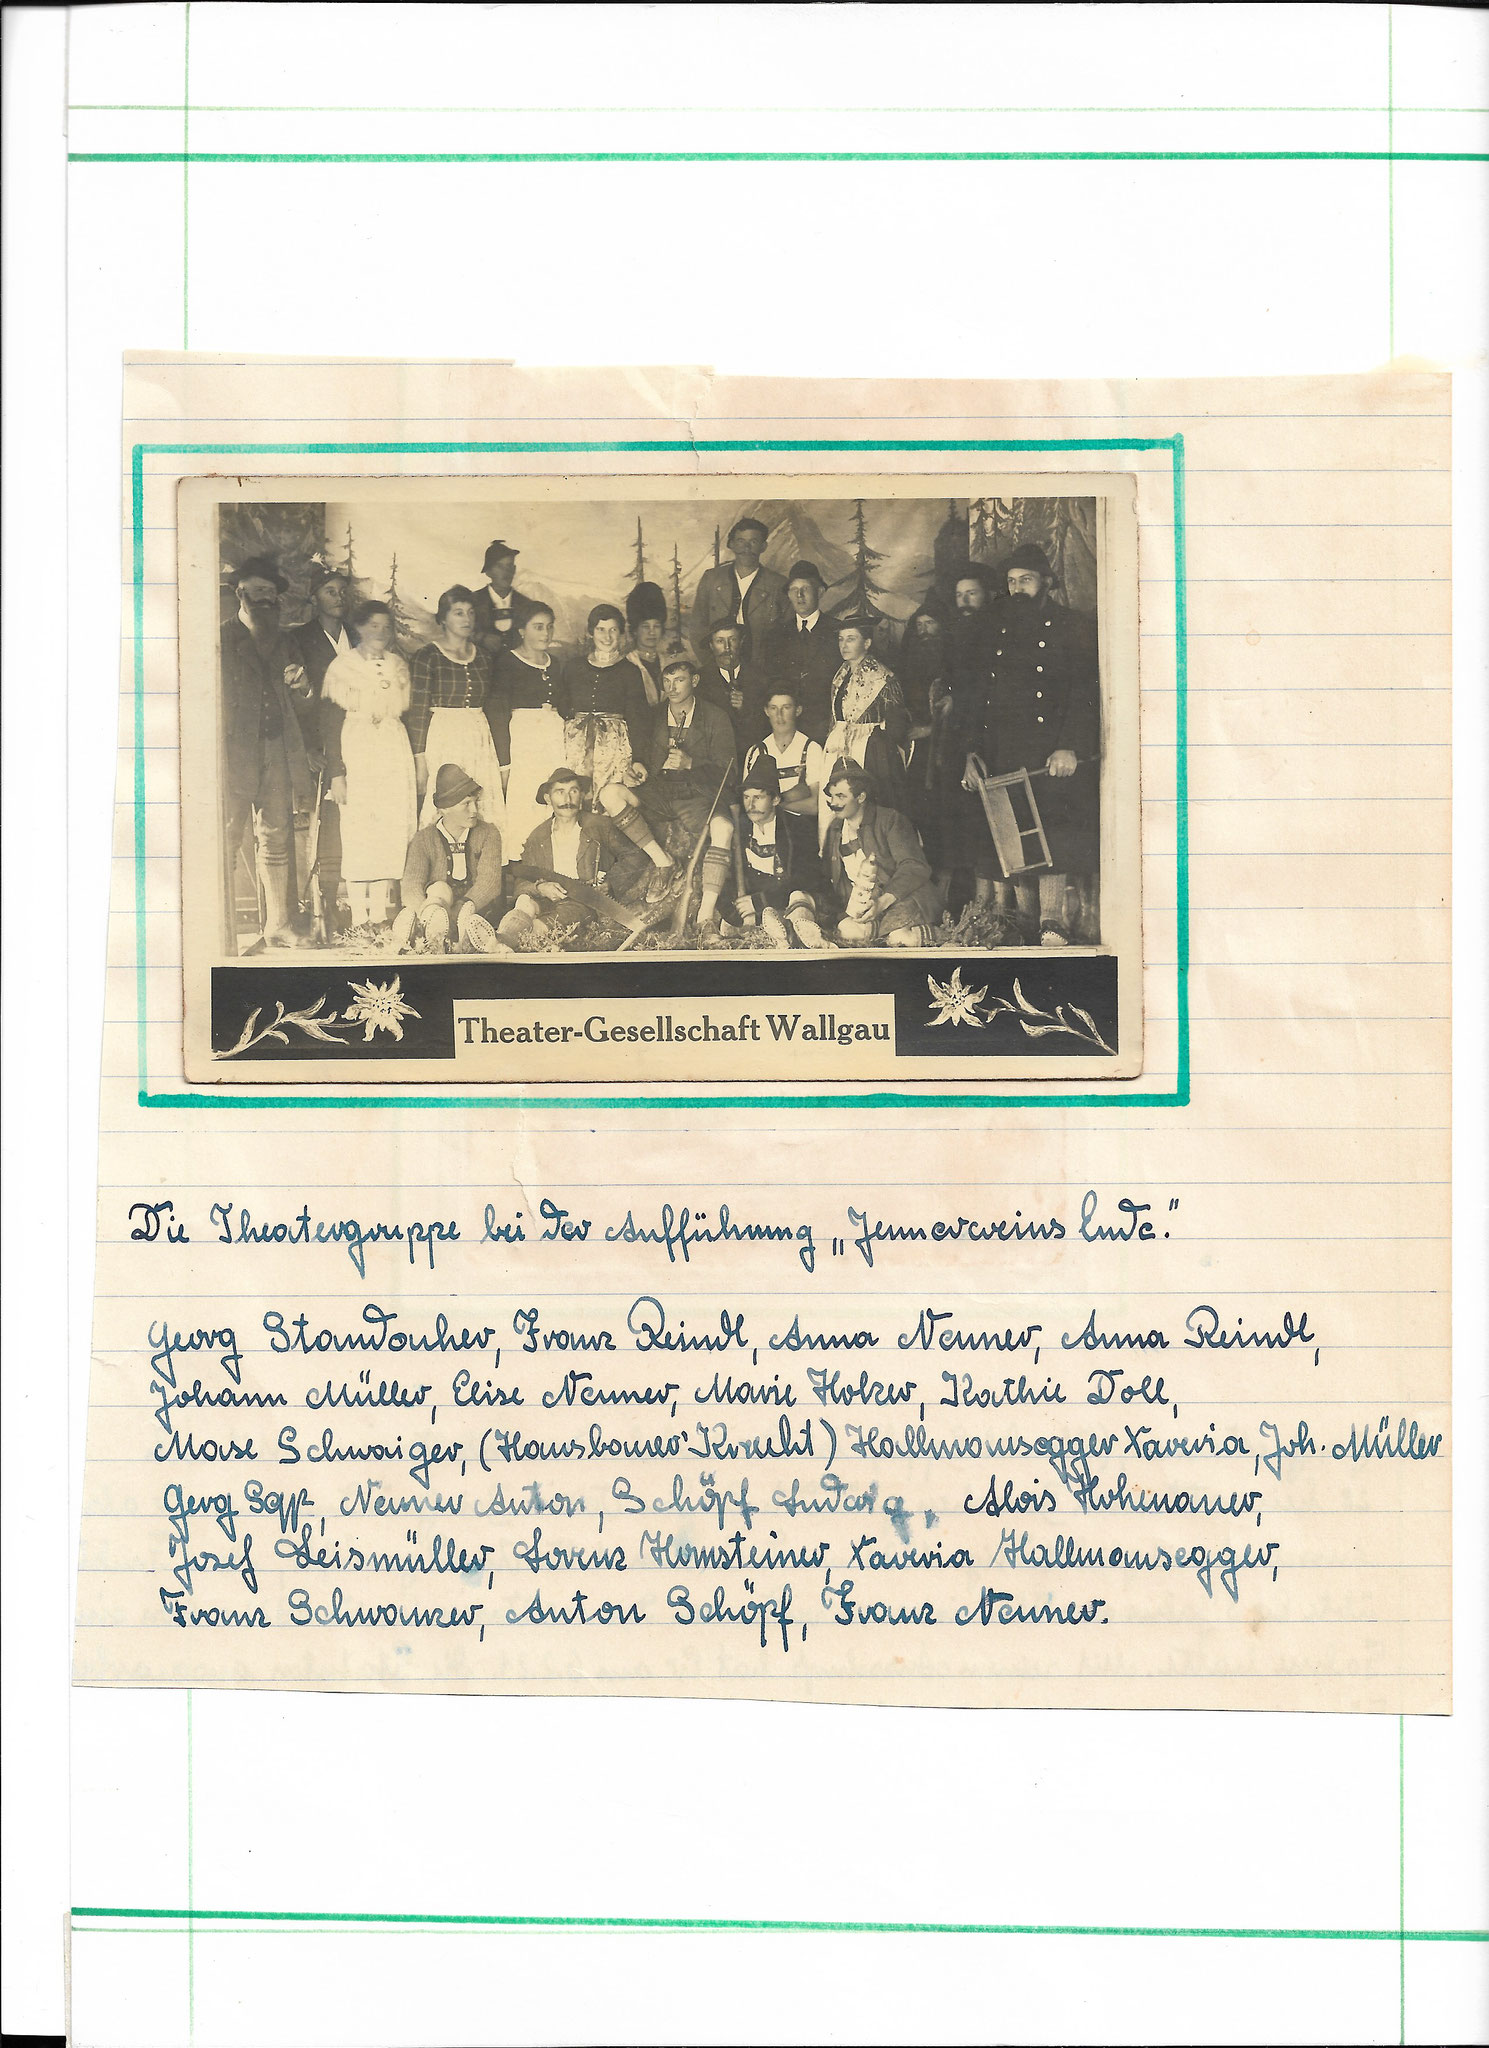 Theater-Gesellschaft Wallgau
Die Theatergruppe bei der Aufführung „Jennerweins Ende."
Georg Standacher, Franz Reindl, Anna Neuner, Anna Reindl,
Johann Müller, Elise Neuner, Marie Holzer, Kathie Doll,
Mase Schwaiger, (Hansbauer Knecht) Hallmannsegger Xaveria, Joh. Müller
Georg Sepp, Neuner Anton, Schöpf Ludwig, Alois Hohenauer,
Josef Leismüller, Lorenz Hornsteiner, Xaveria Hallmannsegger,
Franz Schwanzer, Anton Schöpf, Franz Neuner.